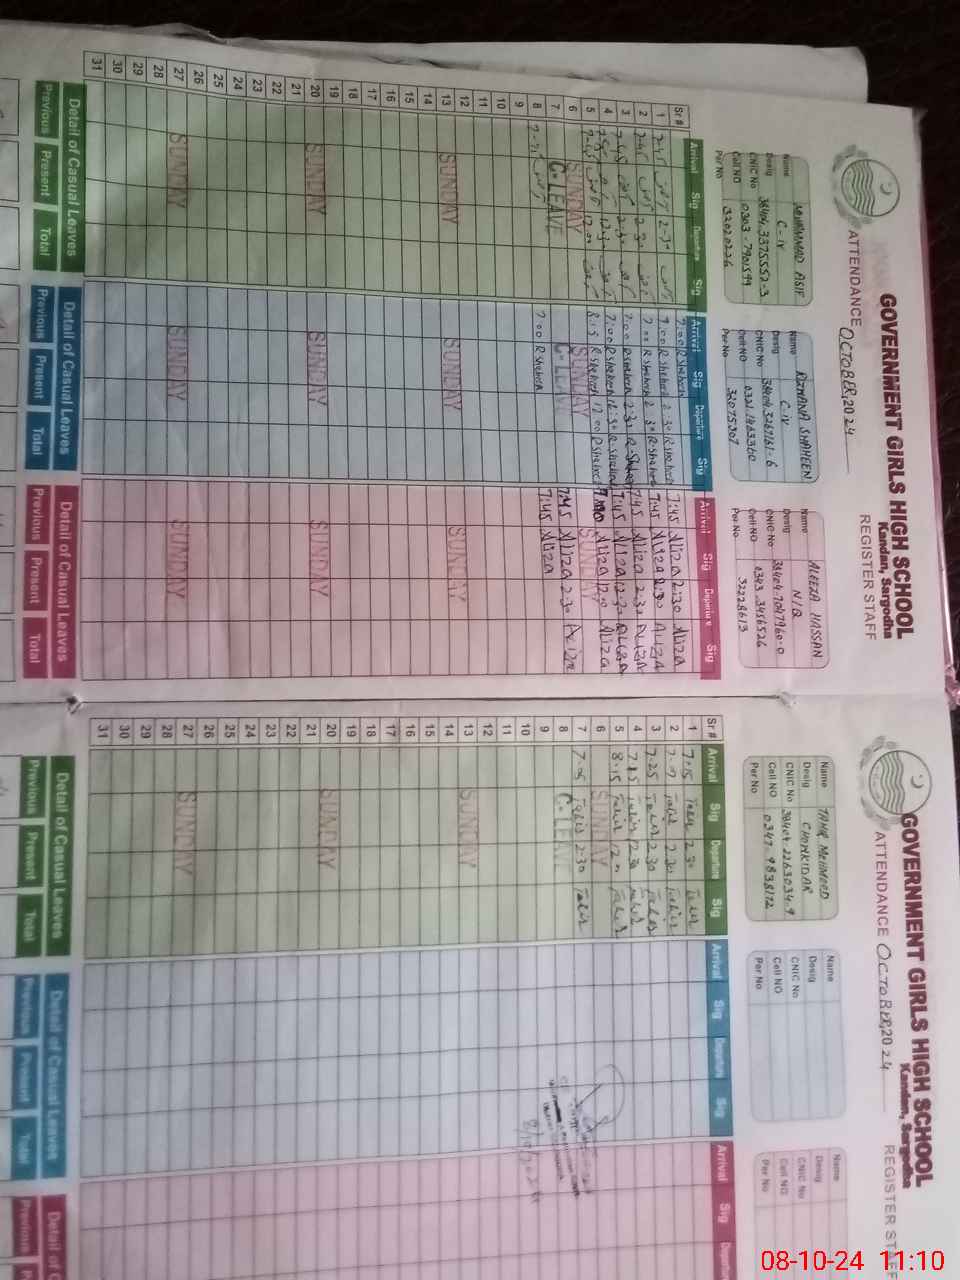 GOVERNMENT GIRLS HIGH SCHOOL
Kandan, Sargodha
ATTENDANCE OCTOBER, 2024 REGISTER STAFF
Name MUHAMMAD ASIF
Desig C-IV
CNIC No 38404.3375557-3
Cell NO 0303-7901599
Per No 32020226
Name RIZWANA SHAHEEN
Desig C-IV
CNIC No
Cell NO
Per No 32075307
Name ALEEZA HASSAN
Desig N/Q
CNIC No 38404-7047960-0
Cell NO 0343-3456526
Per No 32228613
Sr # Arrival Sig Departure Sig Arrival Sig Departure Sig Arrival Sig Departure Sig
1 2-30 7:00 R.shaheen 2:30 R.shaheen 7:45 Aliza 2:30 Aliza
2 7-45 2-30 7:00 R.shaheen 2:30 R.shaheen 7:45 Aliza 2:30 ALIZA
3 7-45 2-30 7:00 R.shaheen 2:30 R.shaheen 7:45 Aliza 2:30 ALIZA
4 12-30 7:00 R.shaheen 12:30 R.shaheen 7:45 Aliza 12:30 ALIZA
5 7-45 12-00 8:15 R.shaheen 12:00 R.shaheen Aliza 12:00 Aliza
6 SUNDAY SUNDAY SUNDAY
7 C-LEAVE C-LEAVE 7:45 Aliza 2:30 Aliza
8 7:00 R.shaheen 7:45 Aliza
9
10
11
12
13 SUNDAY SUNDAY SUNDAY
14
15
16
17
18
19
20 SUNDAY SUNDAY SUNDAY
21
22
23
24
25
26
27 SUNDAY SUNDAY SUNDAY
28
29
30
31
Detail of Casual Leaves Detail of Casual Leaves Detail of Casual Leaves
Previous Present Total Previous Present Total Previous Present Total
GOVERNMENT GIRLS HIGH SCHOOL
Kandan, Sargodha
ATTENDANCE OCTOBER, 2024 REGISTER STAFF
Name TAHIR MEHMOOD
Desig CHOWKIDAR
CNIC No 38404-2263034-9
Cell NO 0347-9838172
Per No
Name
Desig
CNIC No
Cell NO
Per No
Name
Desig
CNIC No
Cell NO
Per No
Sr # Arrival Sig Departure Sig Arrival Sig Departure Sig Arrival Sig Departure
1 7:15 Tahir 2:30 Tahir
2 Tahir 2:30 Tahir
3 7:25 Tahir 2:30 Tahir
4 7:15 Tahir 12:30 Tahir
5 8:15 Tahir Tahir
6 SUNDAY
7 Tahir 2:30 Tahir
8 C-LEAVE
9
10
11
12
13 SUNDAY
14
15
16
17
18
19
20 SUNDAY
21
22
23
24
25
26
27 SUNDAY
28
29
30
31
Detail of Casual Leaves Detail of Casual Leaves Detail of
Previous Present Total Previous Present Total Previous
08-10-24 11:10